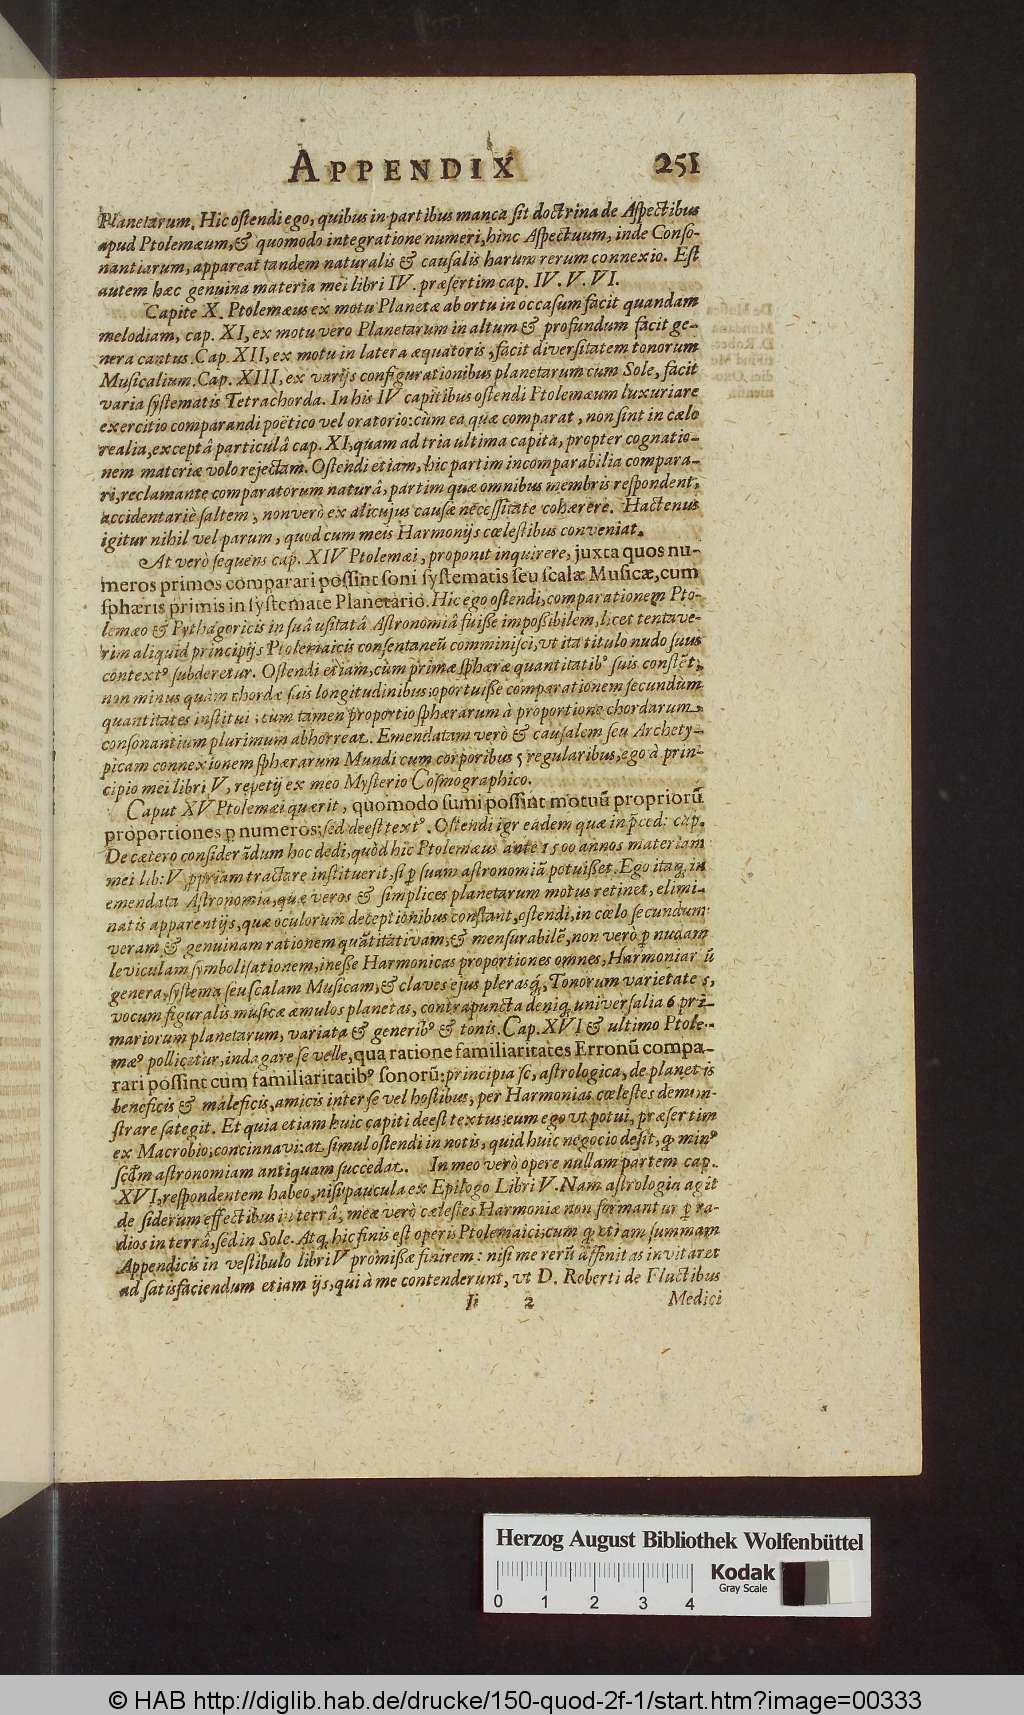 APPENDIX 251
Planetarum. Hic ostendi ego, quibus in partibus manca sit doctrina de Aspectibus
apud Ptolemæum, & quomodo integratione numeri, hinc Aspectuum, inde Conso-
nantiarum, appareat tandem naturalis & causalis harum rerum connexio. Est
autem hæc genuina materia mei libri IV. præsertim cap. IV. V. VI.
Capite X. Ptolemæus ex motu Planetæ ab ortu in occasum facit quandam
melodiam, cap. XI, ex motu vero Planetarum in altum & profundum facit ge-
nera cantus. Cap. XII, ex motu in latera æquatoris, facit diversitatem tonorum
Musicalium. Cap. XIII, ex varijs configurationibus planetarum cum Sole, facit
varia systematis Tetrachorda. In his IV capitibus ostendi Ptolemæum luxuriare
exercitio comparandi poëtico vel oratorio: cùm ea quæ comparat, non sint in cœlo
realia, exceptâ particulâ cap. XI, quam ad tria ultima capita, propter cognatio-
nem materiæ volo rejectam. Ostendi etiam, hic partim incomparabilia compara-
ri, reclamante comparatorum naturâ, partim quæ omnibus membris respondent,
accidentariè saltem, non verò ex alicujus causæ necessitate cohærere. Hactenus
igitur nihil vel parum, quod cum meis Harmonijs cœlestibus conveniat.
At verò sequens cap. XIV Ptolemæi, proponit inquirere, juxta quos nu-
meros primos comparari possint soni systematis seu scalæ Musicæ, cum
sphæris primis in systemate Planetario. Hic ego ostendi, comparationem Pto-
lemæo & Pythagoricis in suâ usitatâ Astronomiâ fuisse impossibilem, licet tentave-
rim aliquid principijs Ptolemaicis consentaneũ comminisci, ut ita titulo nudo suus
contextꝰ subderetur. Ostendi etiam, cùm primæ sphæræ quantitatibꝰ suis constẽt,
non minus quàm chordæ suis longitudinibus; oportuisse comparationem secundùm
quantitates institui: cum tamen proportio sphærarum à proportione chordarum,
consonantium plurimum abhorreat. Emendatam verò & causalem seu Archety-
picam connexionem sphærarum Mundi cum corporibus 5 regularibus, ego à prin-
cipio mei libri V, repetij ex meo Mysterio Cosmographico.
Caput XV Ptolemæi quærit, quomodo sumi possint motuũ propriorũ
proportiones p numeros: sed deest textꝰ. Ostendi igr eadem quæ in p̃ced: cap.
De cætero considerãdum hoc dedi, quòd hic Ptolemæus ante 1500 annos materiam
mei lib: V ꝓpriam tractare instituerit, si p suam astronomiã potuisset. Ego itaq̃, in
emendata Astronomia, quæ veros & simplices planetarum motus retinet, elimi-
natis apparentijs, quæ oculorum deceptionibus constant, ostendi, in cœlo secundum
veram & genuinam rationem quãtitativam, & mensurabilẽ, non verò p nudam
leviculam symbolisationem, inesse Harmonicas proportiones omnes, Harmoniarũ
genera, systema seu scalam Musicam, & claves ejus plerasq́, Tonorum varietates,
vocum figuralis musicæ æmulos planetas, contrapuncta deniq; universalia 6 pri-
mariorum planetarum, variata & generibꝰ & tonis. Cap. XVI & ultimo Ptole-
mæꝰ pollicetur, indagare se velle, qua ratione familiaritates Erronũ compa-
rari possint cum familiaritatibꝰ sonorũ: principia sc, astrologica, de planetis
beneficis & maleficis, amicis inter se vel hostibus, per Harmonias cœlestes demon-
strare sategit. Et quia etiam huic capiti deest textus: eum ego ut potui, præsertim
ex Macrobio, concinnavi: at simul ostendi in notis, quid huic negocio desit, q̃ minꝰ
scd̃m astronomiam antiquam succedat. In meo verò opere nullam partem cap.
XVI, respondentem habeo, nisi paucula ex Epilogo Libri V. Nam astrologia agit
de siderum effectibus in terrâ, meæ verò cælestes Harmoniæ non formantur p ra-
dios in terrâ, sed in Sole. Atq́ hic finis est operis Ptolemaici; cum q̃ etiam summam
Appendicis in vestibulo libri V promissæ finirem: nisi me rerũ affinitas invitaret
ad satisfaciendum etiam ijs, qui à me contenderunt, ut D. Roberti de Fluctibus
Ii 2 Medici
Herzog August Bibliothek Wolfenbüttel
0 1 2 3 4
Kodak
Gray Scale
© HAB http://diglib.hab.de/drucke/150-quod-2f-1/start.htm?image=00333